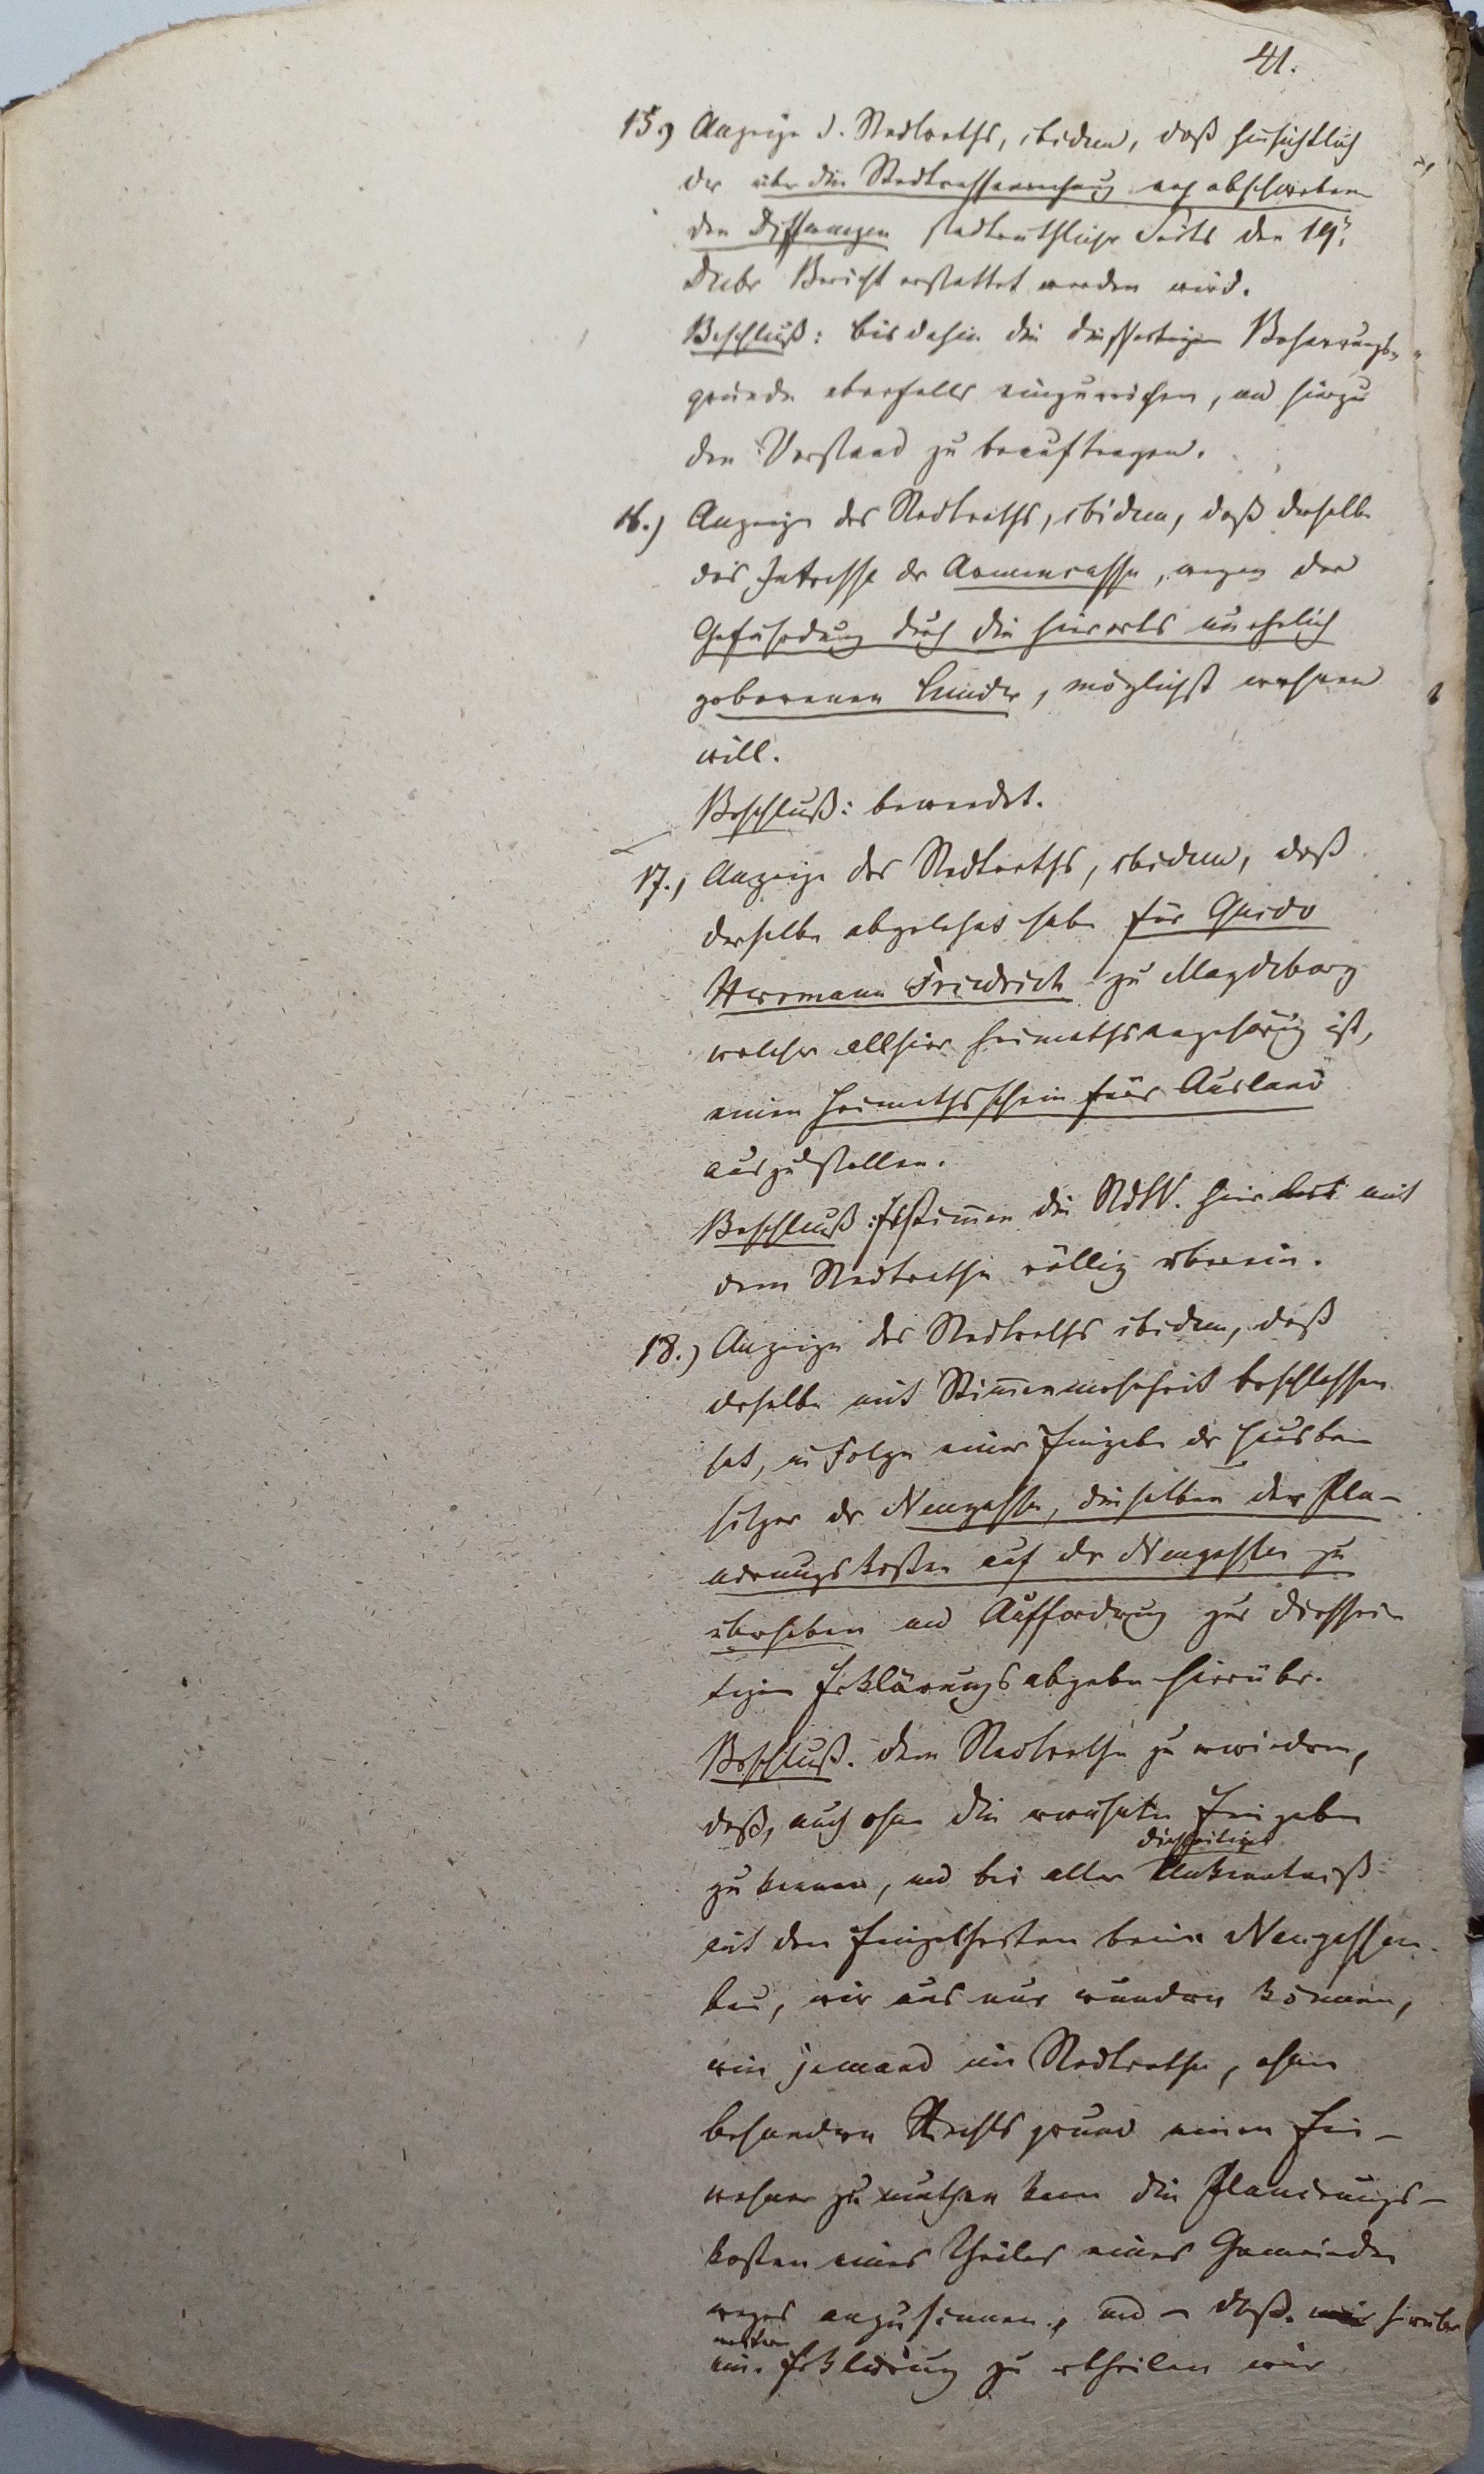 41.
15.) Anzeige d. Stadtraths, ibidem, daß hinsichtlich
der über die Stadtcassenrechnung noch abschweben-
den Differenzen stadträthlicher Seits den 19.
Decbr Bericht erstattet werden wird.
Beschluß: bis dahin die diesseitigen Beharrungs-
gründe ebenfalls einzureichen, und hierzu
den Vorstand zu beauftragen.
16.) Anzeige des Stadtraths, ibidem, daß derselbe
das Interesse der Armencasse, wegen der
Gefährdung durch die hierorts unehelich
geborenen Kinder, möglichst wahren
will.
Beschluß: bewendet.
17.) Anzeige des Stadtraths, ibidem, daß
derselbe abgelehnt habe für Guido
Herrmann Friedrich zu Magdeburg
welcher allhier heimathsangehörig ist,
einen Heimathsschein fürs Ausland
auszustellen.
Beschluß: Es stimmen die StdtV. hier mit
dem Stadtrathe völlig überein.
18.) Anzeige des Stadtraths ibidem, daß
derselbe mit Stimmenmehrheit beschlossen
hat, in Folge einer Eingabe der Hausbe-
sitzer der Neugasse, dieselben der Pla-
nirungskosten auf der Neugasse zu
überheben und Aufforderung zur diessei-
tigen Erklärungsabgabe hierüber.
Beschluß. dem Stadtrathe zu erwiedern,
daß, auch ohne die erwähnte Eingabe
zu kennen, und bei aller diesseitigen Unkenntniß
mit den Einzelheiten beim Neugassen-
bau, wir uns nur wundern können,
wie jemand im Stadtrathe, ohne
besondern Rechtsgrund einem Ein-
wohner zu muthen kann die Planirungs-
kosten eines Theiles eines Gemeinde
weges anzusinnen, und daß hierüber
weitere Erklärung zu ertheilen wir